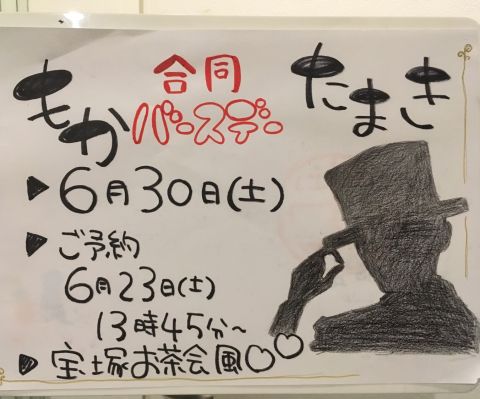 もか 合同 バースデー たまき
▶ 6月30日(土)
▶ ご予約
6月23日(土)
13時45分~
▶ 宝塚お茶会風♡♡